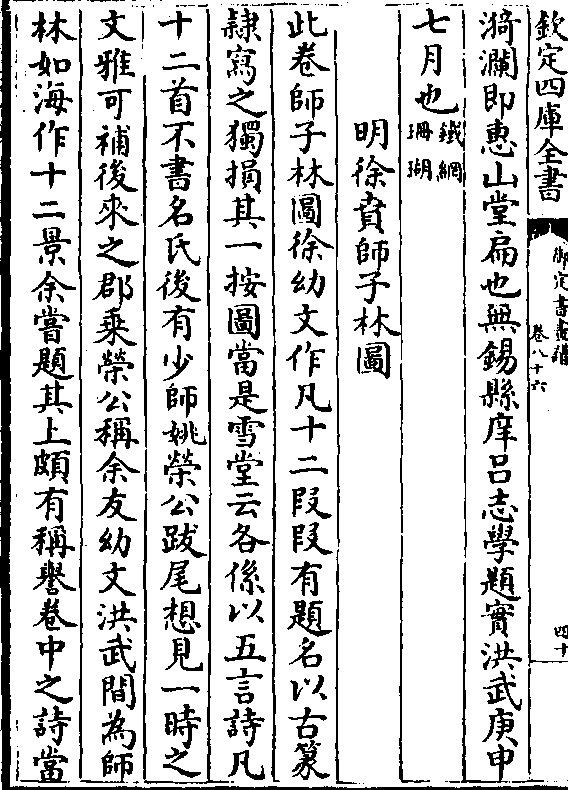 欽定四庫全書
御定書畫譜
卷八十六
四十
漪瀾即惠山堂扁也無錫縣庠呂志學題實洪武庚申
七月也鐵網
珊瑚
明徐賁師子林圖
此卷師子林圖徐幼文作凡十二段段有題名以古篆
隸寫之獨損其一按圖當是雪堂云各係以五言詩凡
十二首不書名氏後有少師姚榮公跋尾想見一時之
文雅可補後來之郡乘榮公稱余友幼文洪武間為師
林如海作十二景余嘗題其上頗有稱譽卷中之詩當